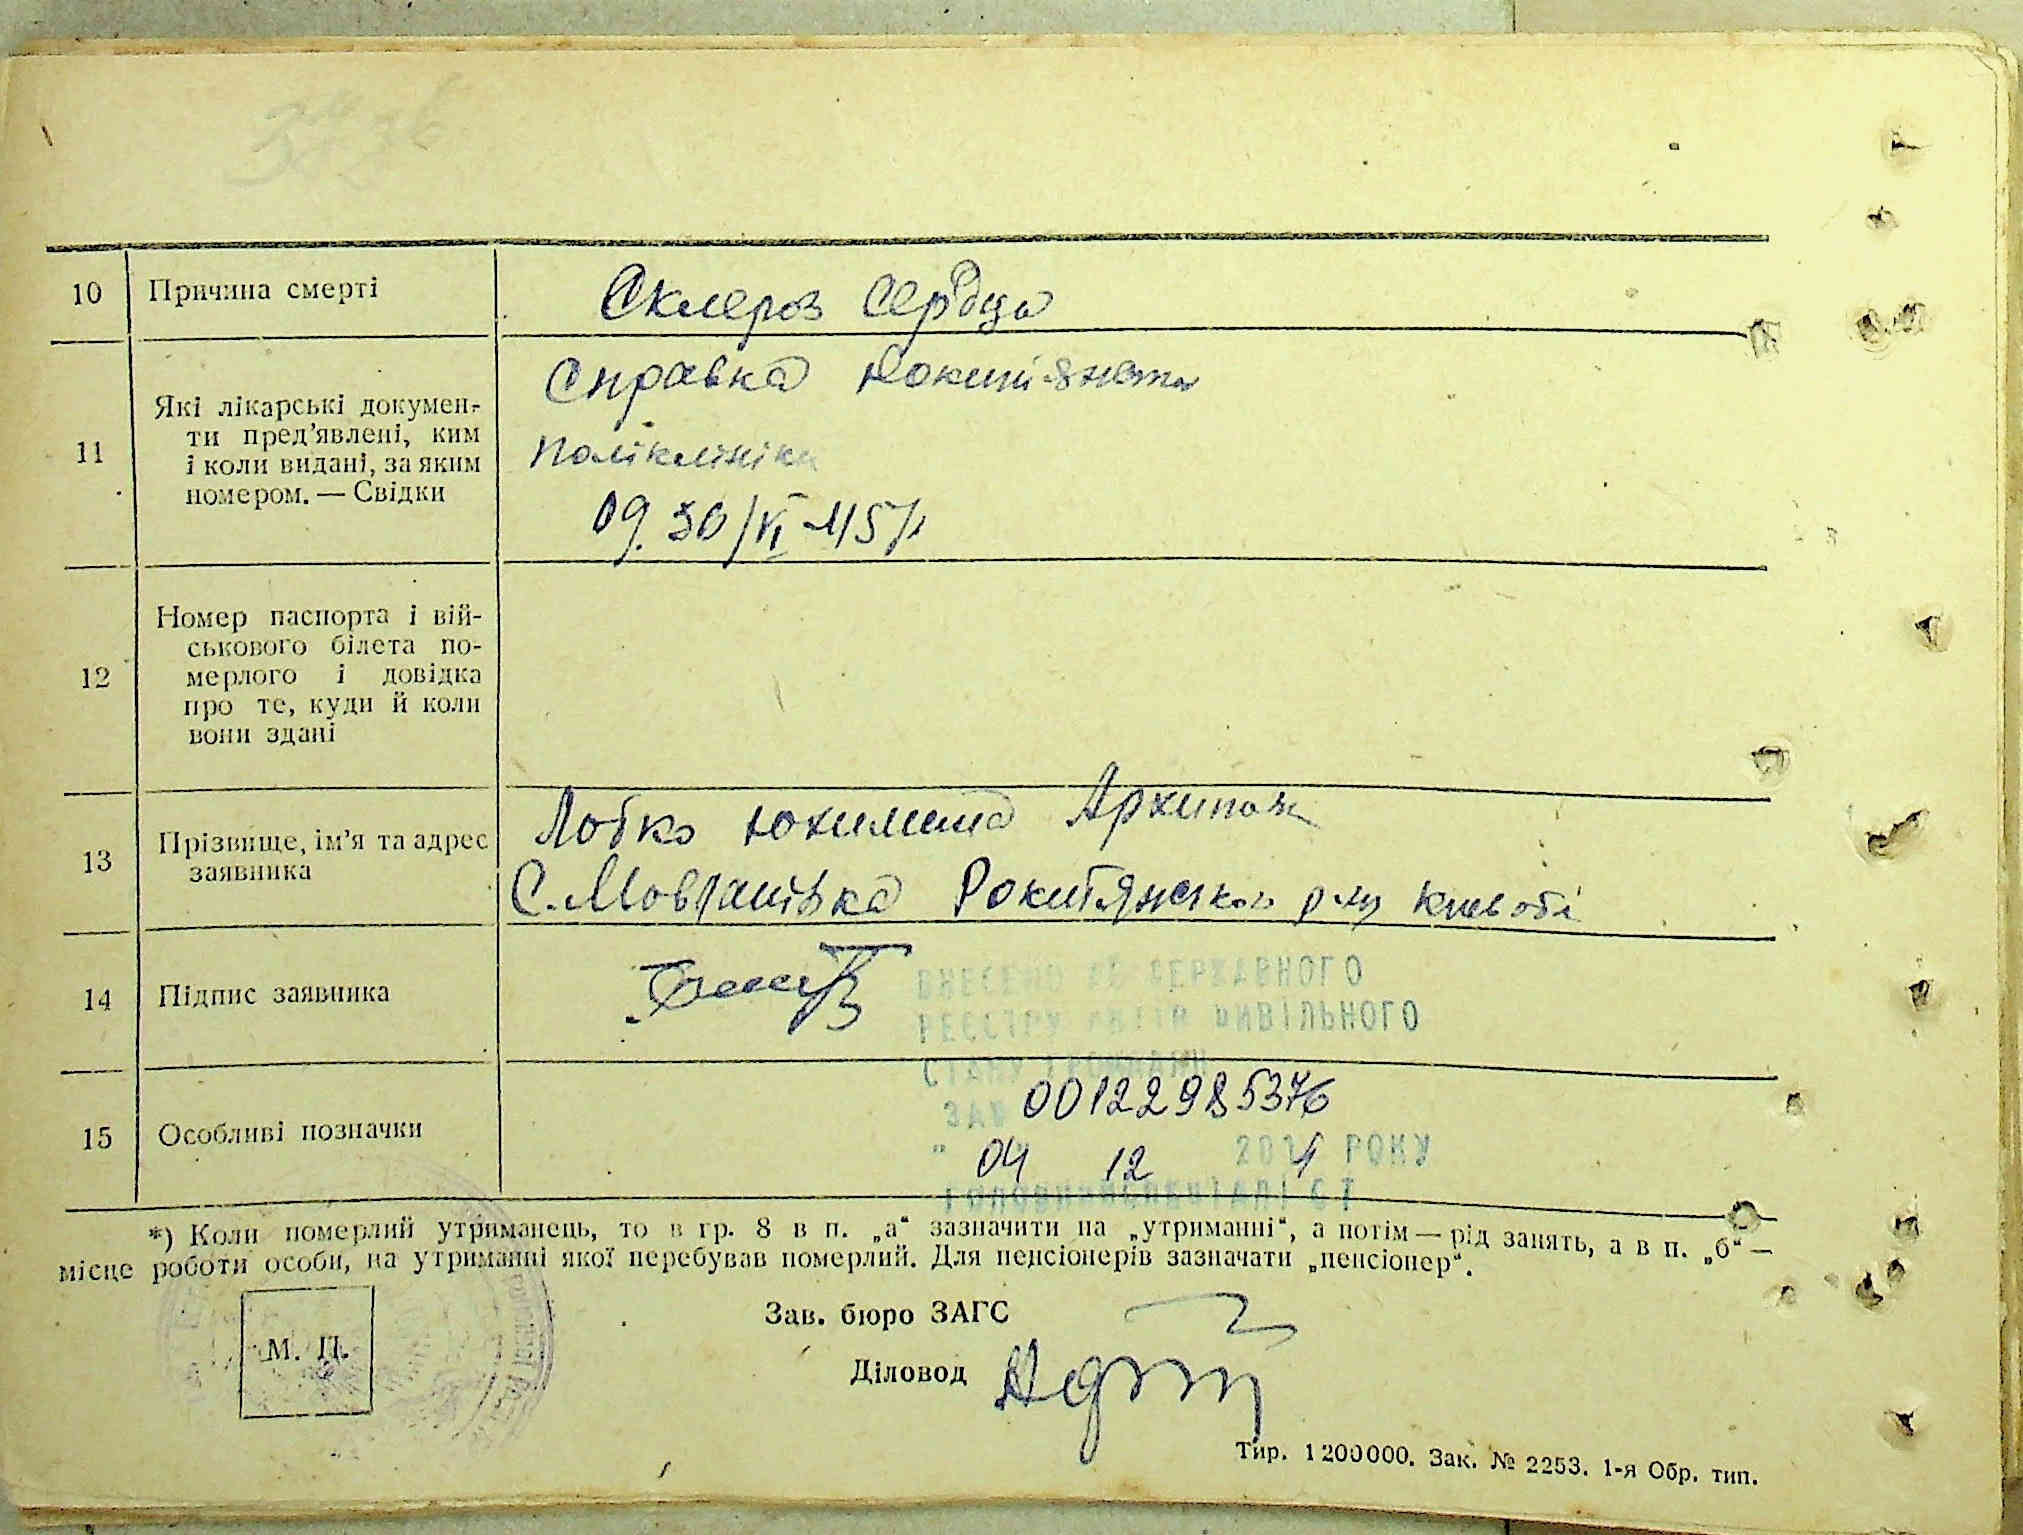 10 Причина смерті
Склероз сердця
11 Які лікарські докумен-
ти пред'явлені, ким
і коли видані, за яким
номером. — Свідки
Справка
поліклініки
09. 30/VI
12 Номер паспорта і вій-
ськового білета по-
мерлого і довідка
про те, куди й коли
вони здані
13 Прізвище, ім'я та адрес
заявника
Лобко Архипов
С. Рокитянского р-ну Київ обл
14 Підпис заявника
ВНЕСЕНО ДО ДЕРЖАВНОГО
РЕЄСТРУ АКТІВ ЦИВІЛЬНОГО
СТАНУ ГРОМАДЯН
15 Особливі позначки
ЗА № 00122985376
" 04 12 РОКУ
ГОЛОВНИЙ СПЕЦІАЛІСТ
*) Коли померлий утриманець, то в гр. 8 в п. „а“ зазначити на „утриманні“, а потім — рід занять, а в п. „б“ —
місце роботи особи, на утриманні якої перебував померлий. Для пенсіонерів зазначати „пенсіонер“.
М. П.
Зав. бюро ЗАГС
Діловод
Тир. 1200000. Зак. № 2253. 1-я Обр. тип.